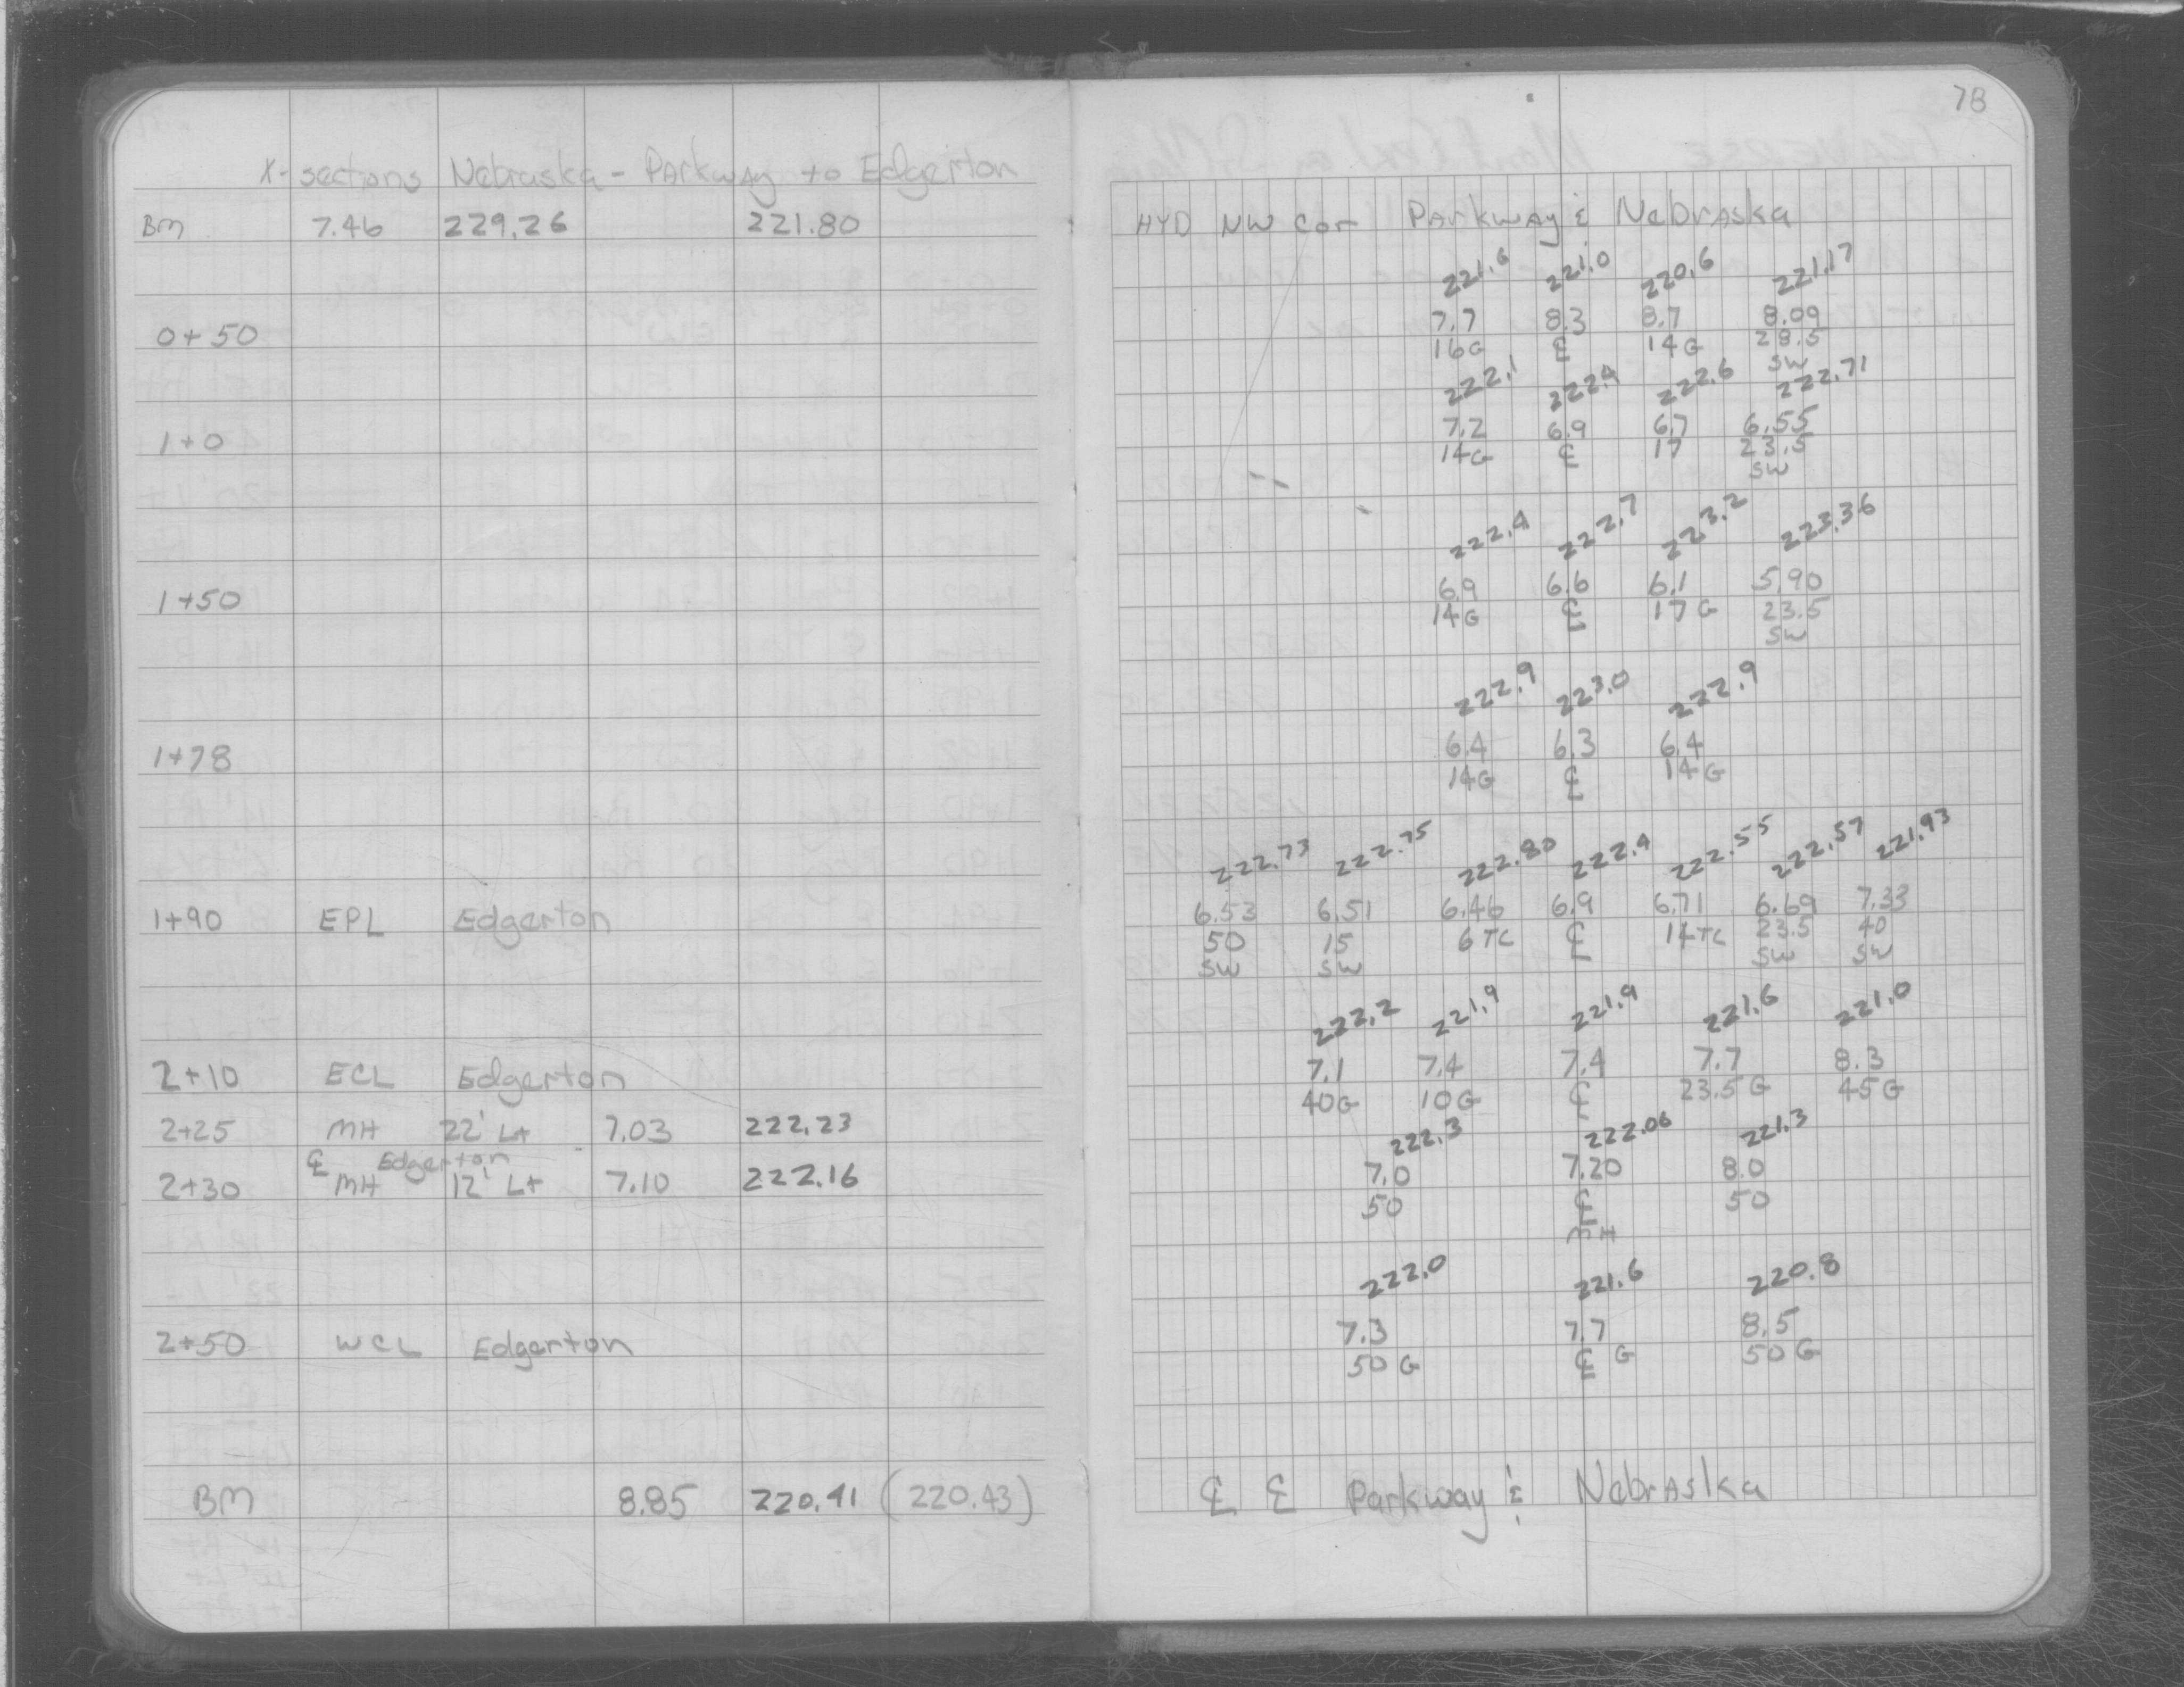 78
X-sections Nebraska - Parkway to Edgerton
BM 7.46 229.26 221.80 HYD NW Cor Parkway & Nebraska
221.6 221.0 220.6 221.17
0+50 7.7 8.3 8.7 8.09
16G ℄ 14G 28.5
SW
222.1 222.4 222.6 222.71
1+0 7.2 6.9 6.7 6.55
14G ℄ 17 23.5
SW
222.4 222.7 223.2 223.36
1+50 6.9 6.6 6.1 5.90
14G ℄ 17G 23.5
SW
222.9 223.0 222.9
1+78 6.4 6.3 6.4
14G ℄ 14G
222.73 222.75 222.80 222.4 222.55 222.57 221.93
1+90 EPL Edgerton 6.53 6.51 6.46 6.9 6.71 6.69 7.33
50 15 6TC ℄ 14TC 23.5 40
SW SW SW SW
222.2 221.9 221.9 221.6 221.0
2+10 ECL Edgerton 7.1 7.4 7.4 7.7 8.3
40G 10G ℄ 23.5G 45G
2+25 MH 22' Lt 7.03 222.23
222.3 222.06 221.3
℄ Edgerton
2+30 MH 12' Lt 7.10 222.16 7.0 7.20 8.0
50 ℄ 50
MH
222.0 221.6 220.8
2+50 WCL Edgerton 7.3 7.7 8.5
50G ℄ G 50G
BM 8.85 220.41 (220.43) ℄ ℄ Parkway & Nebraska